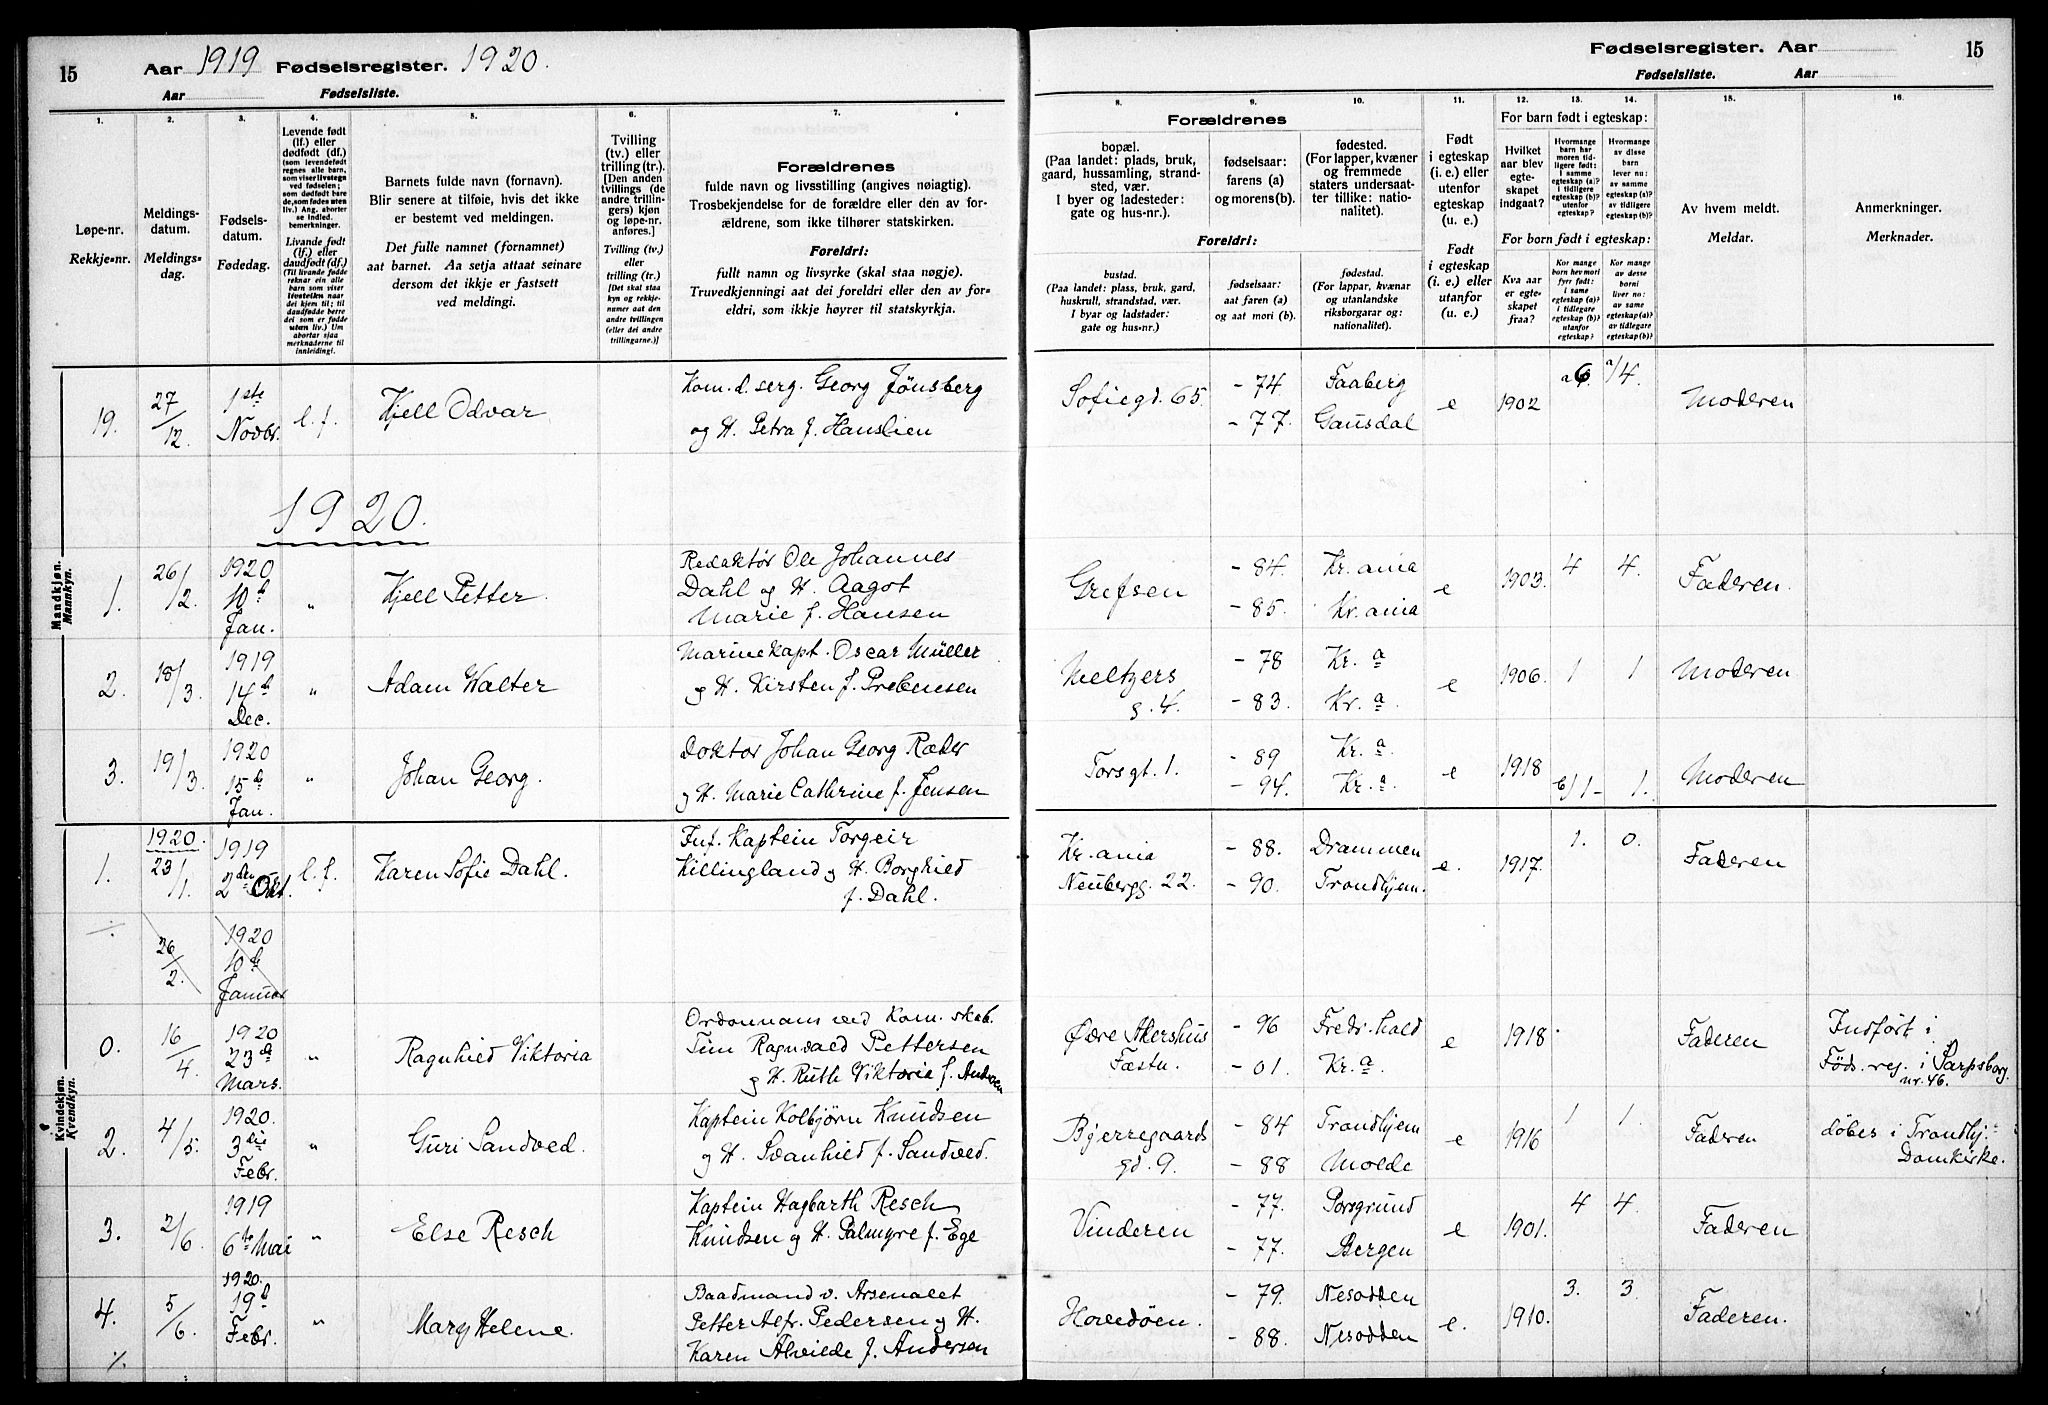 15 Aar 1919 Fødselsregister. 1920.
Aar Fødselsliste.
Fødselsregister. Aar 15
Fødselsliste. Aar
1. 2. 3. 4. 5. 6. 7.
Løpe-nr.
Rekkje-nr.
Meldings-
datum.
Meldings-
dag.
Fødsels-
datum.
Fødedag.
Levende født
(lf.) eller
dødfødt (df.)
(som levendefødt
regnes alle barn,
som viser livstegn
ved fødselen;
som dødfødt bare
de, som fødes uten
liv.) Ang. aborter
se indled.
bemerkninger.
Livande født
(lf.) eller
daudfødt (df.)
(Til livande fødde
reknar ein alle
barn som viser
livsteikn naar
dei kjem til; til
daudfødde berre
dei som er fødde
utan liv.) Um
abortar sjaa
merknaderne til
innleiding!.
Barnets fulde navn (fornavn).
Blir senere at tilføie, hvis det ikke
er bestemt ved meldingen.
Det fulle namnet (fornamnet)
aat barnet. Aa setja attaat seinare
dersom det ikkje er fastsett
ved meldingi.
Tvilling
(tv.) eller
trilling (tr.).
[Den anden
tvillings (de
andre trillin-
gers) kjøn
og løpe-nr.
anføres.]
Tvilling (tv.)
eller
trilling (tr.)
[Det skal staa
kyn og rekkje-
numer aat den
andre tvillingen
(eller dei andre
trillingarne.)]
Forældrenes
fulde navn og livsstilling (angives nøiagtig).
Trosbekjendelse for de forældre eller den av for-
ældrene, som ikke tilhører statskirken.
Foreldri:
fullt namn og livsyrke (skal staa nøgje).
Truvedkjenningi aat dei foreldri eller den av for-
eldri, som ikkje høyrer til statskyrkja.
8. 9. 10. 11. 12. 13. 14. 15. 16.
Forældrenes
bopæl.
(Paa landet: plads, bruk,
gaard, hussamling, strand-
sted, vær.
I byer og ladesteder:
gate og hus-nr.).
fødselsaar:
farens (a)
og morens (b).
fødested.
(For lapper, kvæner
og fremmede
staters undersaat-
ter tillike: natio-
nalitet).
Foreldri:
bustad.
(Paa landet: plass, bruk, gard,
huskrull, strandstad, vær.
I byar og ladstader:
gate og hus-nr.)
fødselsaar:
aat faren (a)
og aat mori (b).
fødestad.
(For lappar, kvænar
og utanlandske
riksborgarar og:
nationalitet).
Født
i egteskap
(i. e.) eller
utenfor
egteskap
(u. e.)
Født
i egteskap
(i. e.) eller
utanfor
(u. e.)
For barn født i egteskap:
Hvilket
aar blev
egte-
skapet
indgaat?
Hvormange
barn har
moren tid-
ligere født:
i samme
egteskap (a)?
i tidligere
egteskap (b)?
utenfor
egteskap?
Hvormange
av disse
barn
lever nu:
av samme
egteskap (a)?
av tidligere
egteskap (b)?
For born født i egteskap:
Kva aar
er egte-
skapet
fraa?
Kor mange
born hev mori
fyrr født:
i same
egteskap (a)?
i tidlegare
egteskap (b)?
utanfor
egteskap?
Kor mange
av desse
borni
liver nu:
av same
egteskap (a)?
av tidlegare
egteskap (b)?
Av hvem meldt.
Meldar.
Anmerkninger.
Merknader.
Mandkjøn.
Mannkyn.
19. 27/12 1ste Novbr. l. f. Kjell Odvar
Kom.d.serg. Georg Jønsberg
og H. Petra f. Hanslien
Sofiegd. 65. - 74 Faaberg
- 77. Gausdal
e 1902 a 6. a/4. Moderen
1920.
1. 26/2. 1920 10d Jan. " Kjell Petter.
Redaktør Ole Johannes
Dahl og H. Aagot
Marie f. Hansen
Grefsen - 84. Kr. ania
- 85. Kr. ania
e 1903. 4 4. Faderen.
2. 18/3. 1919 14d Dec. " Adam Walter
Marinekapt. Oscar Müller
og H. Kirsten f. Prebensen
Meltzers
g. 4.
- 78 Kr. a
- 83. Kr. a.
e 1906. 1 1 Moderen
3. 19/3. 1920 15d Jan. " Johan Georg.
Doktor Johan Georg Ræder
og H. Marie Cathrine f. Jensen
Torsgt. 1. - 89 Kr. a
- 94. Kr. a.
e 1918 1- 1. Moderen
Kvindekjøn.
Kvendkyn.
1. 1920. 23/1. 1919 2den Okt. l. f. Karen Sofie Dahl.
Inf. Kaptein Torgeir
Killingland og H. Borghild
f. Dahl.
Kr. ania
Neubergg. 22.
- 88. Drammen
- 90. Trondhjem.
e. 1917. 1. 0. Faderen
26/2. 1920 10de Januar
0. 16/4. 1920 23de Mars. " Ragnhild Viktoria
Ordonnans ved Kom. skab.
Ragnvald Pettersen
og H. Ruth Viktoria f. Andersen
Øvre Akershus
Fæstn.
- 96 Fredr.hald
- 01. Kr. a.
e 1918. Faderen
Indført i
Føds. rej. i Sarpsborg.
nr. 46.
2. 4/5. 1920. 3die Febr. " Guri Sandved.
Kaptein Kolbjørn Knudsen
og H. Svanhild f. Sandved.
Bjerregaards
gd. 9.
- 84 Trondhjem
- 88 Molde
e 1916 1 1. Faderen
døbes i Trondhj.
Domkirke.
3. 2/6. 1919 6te Mai " Else Resch
Kaptein Hagbarth Resch
Knudsen og H. Palmyre f. Ege
Vinderen - 77. Porsgrund
- 77. Bergen
e 1901. 4 4 Faderen
4. 5/6. 1920. 19d Febr. " Mary Helene.
Baadmand v. Arsenalet
Petter Alfr. Pedersen og H.
Karen Alvilde f. Andersen
Hovedøen. - 79. Nesodden
- 88. Nesodden
e. 1910. 3. 3 Faderen.